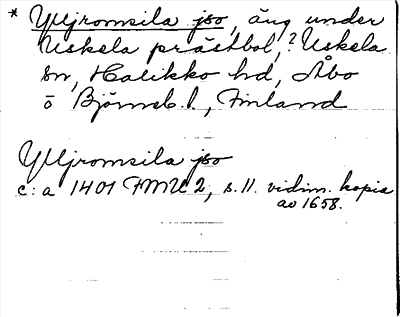 * Yljromsila jso, äng under
Uskela prästbol, ? Uskela
sn, Halikko hd, Åbo
o Björneb. l., Finland
Yljromsila jso
c:a 1401 FMU 2, s. 11. vidim. kopia
av 1658.